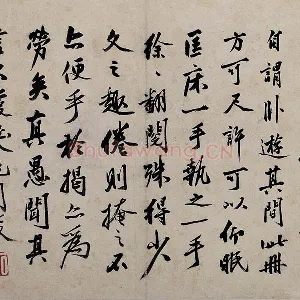 自謂卧遊其間此冊
方可尺許可以仰眠
匡床一手執之一手
徐〻翻閱殊得少
文之趣倦則掩之不
亦便乎於揭亦爲
勞矣真愚聞其